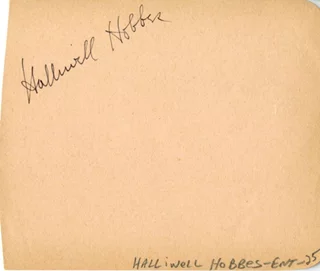 Halliwell Hobbes
HALLiwell HOBBES-ENT-25